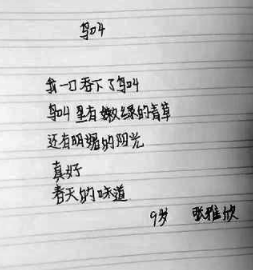 鸟叫
我一口吞下了鸟叫
鸟叫里有嫩绿的青草
还有明媚的阳光
真好
春天的味道
9岁 张雅欣